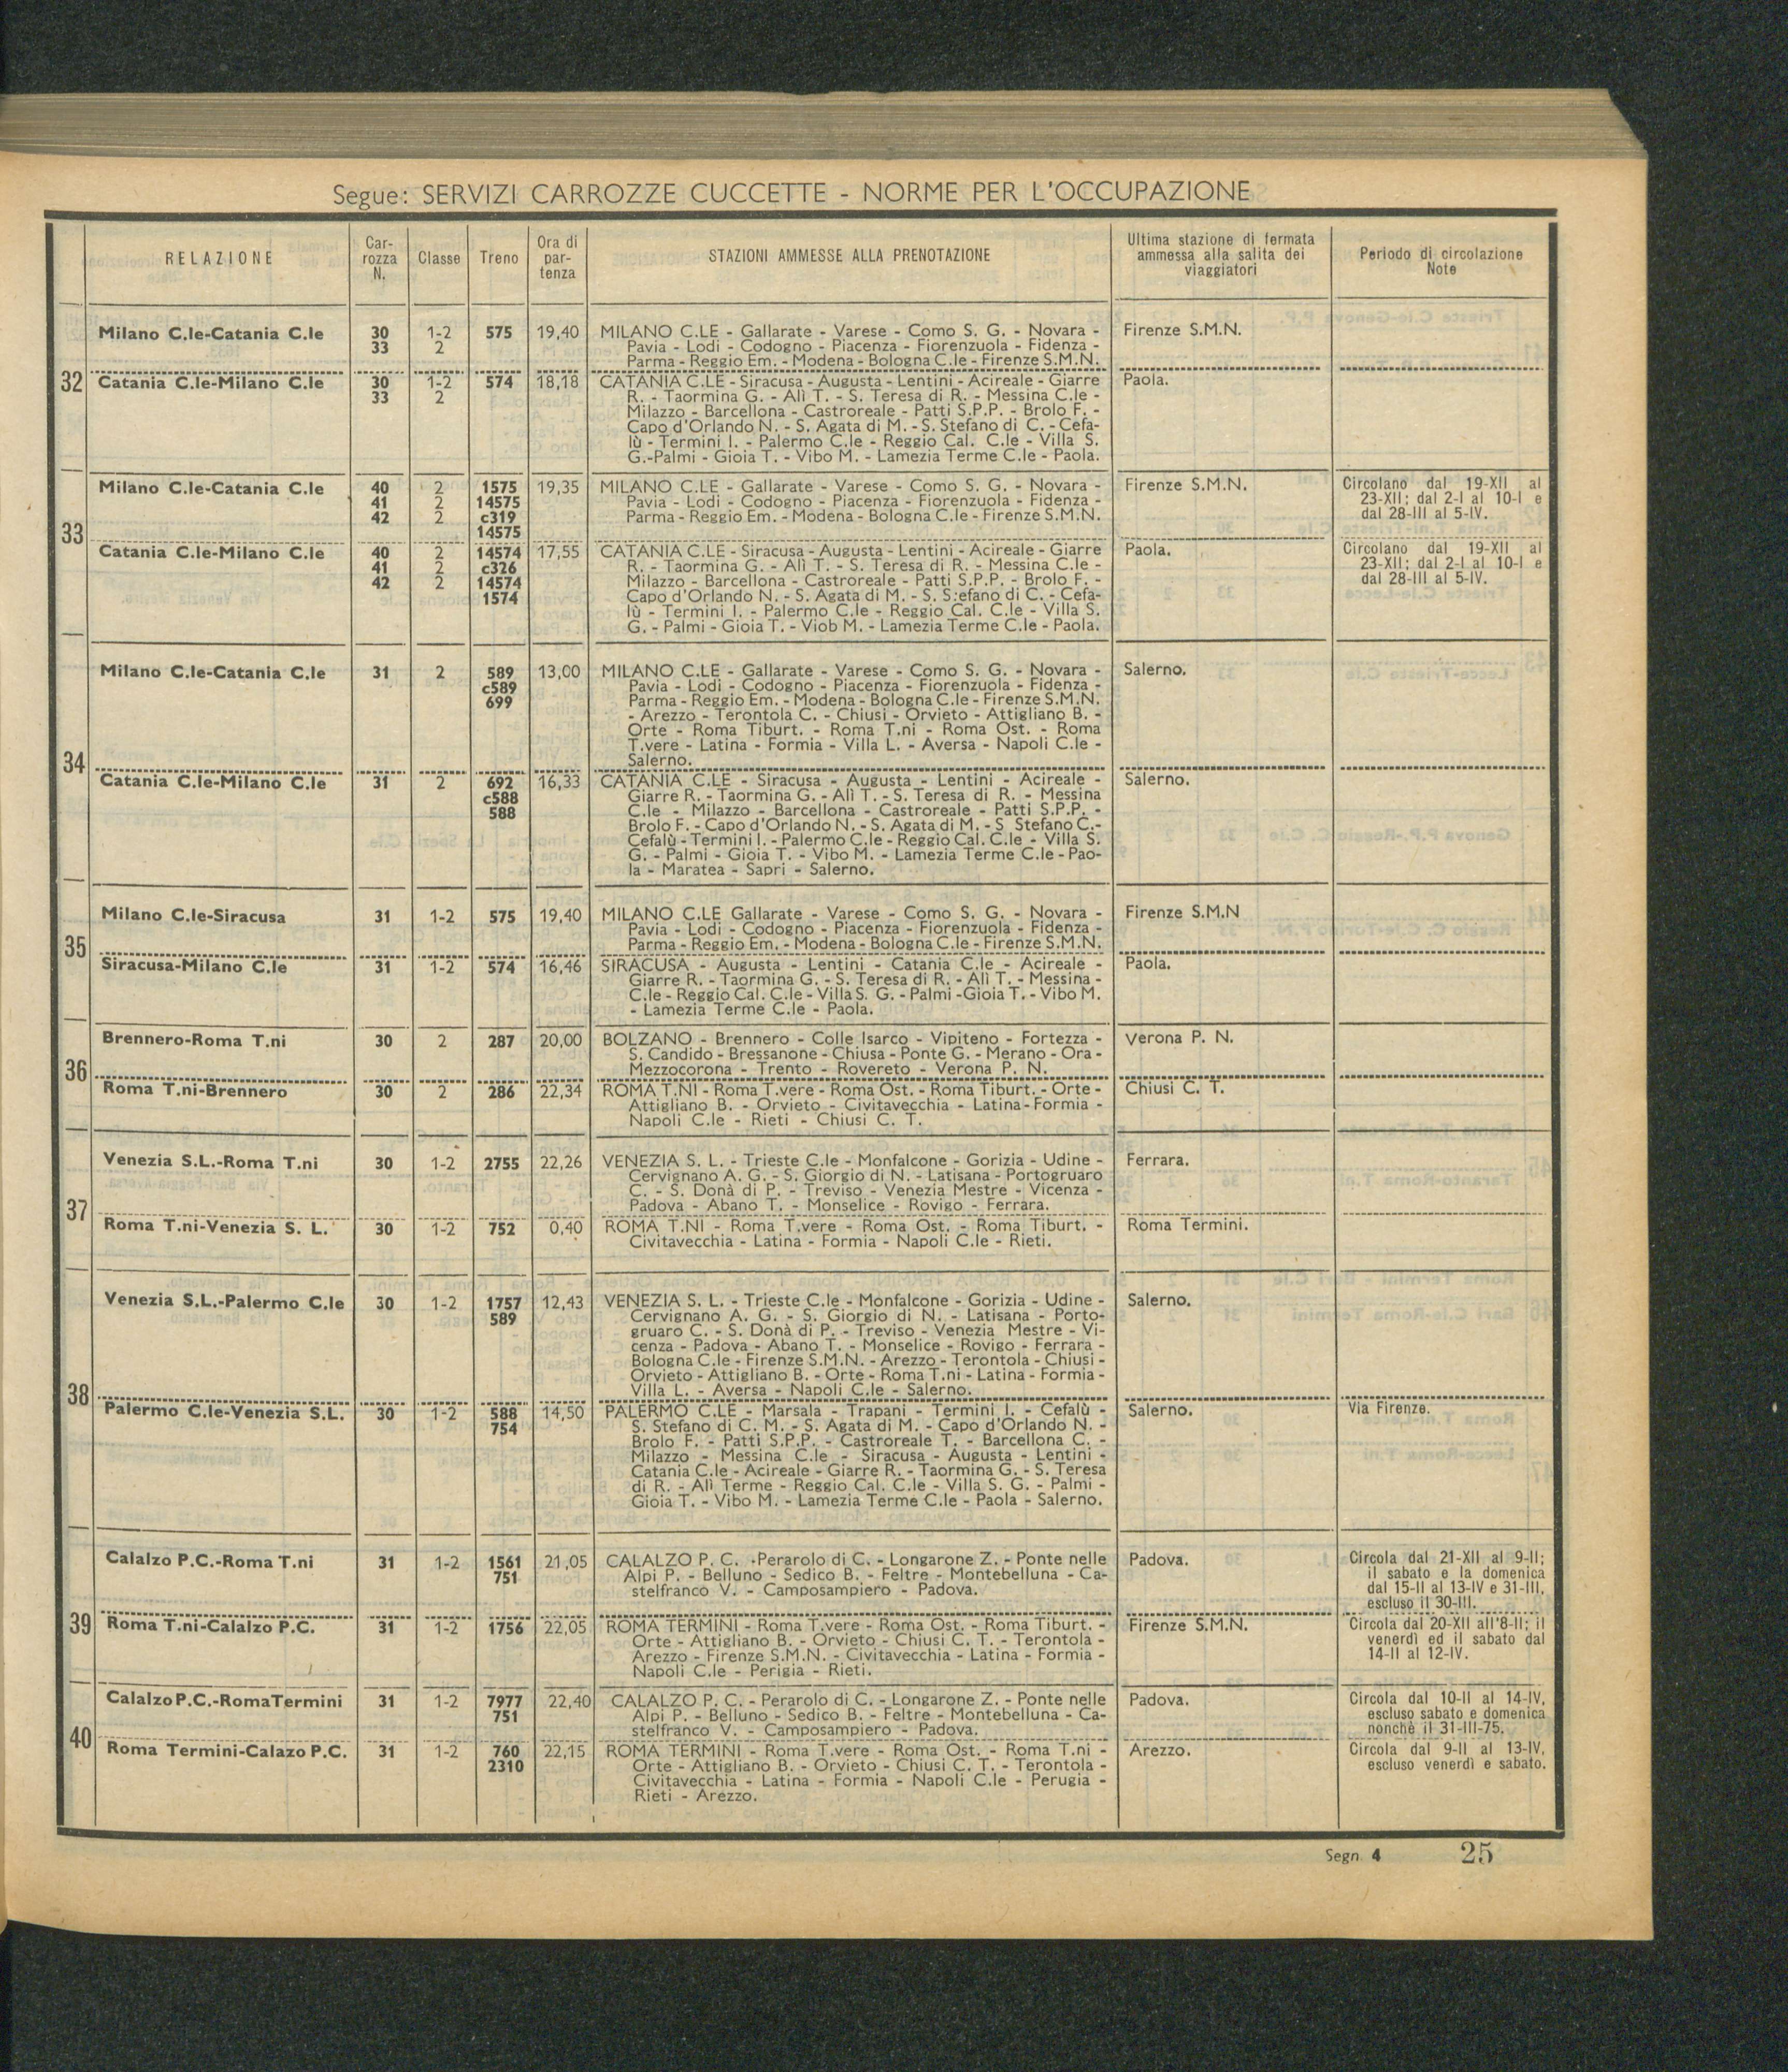 Segue: SERVIZI CARROZZE CUCCETTE - NORME PER L'OCCUPAZIONE
RELAZIONE
Car-
rozza
N.
Classe
Treno
Ora di
par-
tenza
STAZIONI AMMESSE ALLA PRENOTAZIONE
Ultima stazione di fermata
ammessa alla salita dei
viaggiatori
Periodo di circolazione
Note
32
Milano C.le-Catania C.le 30 1-2 575 19,40 MILANO C.LE - Gallarate - Varese - Como S. G. - Novara - Firenze S.M.N.
33 2 Pavia - Lodi - Codogno - Piacenza - Fiorenzuola - Fidenza -
Parma - Reggio Em. - Modena - Bologna C.le - Firenze S.M.N.
Catania C.le-Milano C.le 30 1-2 574 18,18 CATANIA C.LE - Siracusa - Augusta - Lentini - Acireale - Giarre Paola.
33 2 R. - Taormina G. - Alì T. - S. Teresa di R. - Messina C.le -
Milazzo - Barcellona - Castroreale - Patti S.P.P. - Brolo F. -
Capo d'Orlando N. - S. Agata di M. - S. Stefano di C. - Cefa-
lù - Termini I. - Palermo C.le - Reggio Cal. C.le - Villa S.
G.-Palmi - Gioia T. - Vibo M. - Lamezia Terme C.le - Paola.
33
Milano C.le-Catania C.le 40 2 1575 19,35 MILANO C.LE - Gallarate - Varese - Como S. G. - Novara - Firenze S.M.N. Circolano dal 19-XII al
41 2 14575 Pavia - Lodi - Codogno - Piacenza - Fiorenzuola - Fidenza - 23-XII; dal 2-I al 10-I e
42 2 c319 Parma - Reggio Em. - Modena - Bologna C.le - Firenze S.M.N. dal 28-III al 5-IV.
14575
Catania C.le-Milano C.le 40 2 14574 17,55 CATANIA C.LE - Siracusa - Augusta - Lentini - Acireale - Giarre Paola. Circolano dal 19-XII al
41 2 c326 R. - Taormina G. - Alì T. - S. Teresa di R. - Messina C.le - 23-XII; dal 2-I al 10-I e
42 2 14574 Milazzo - Barcellona - Castroreale - Patti S.P.P. - Brolo F. - dal 28-III al 5-IV.
1574 Capo d'Orlando N. - S. Agata di M. - S. S:efano di C. - Cefa-
lù - Termini I. - Palermo C.le - Reggio Cal. C.le - Villa S.
G. - Palmi - Gioia T. - Viob M. - Lamezia Terme C.le - Paola.
34
Milano C.le-Catania C.le 31 2 589 13,00 MILANO C.LE - Gallarate - Varese - Como S. G. - Novara - Salerno.
c589 Pavia - Lodi - Codogno - Piacenza - Fiorenzuola - Fidenza -
699 Parma - Reggio Em. - Modena - Bologna C.le - Firenze S.M.N.
- Arezzo - Terontola C. - Chiusi - Orvieto - Attigliano B. -
Orte - Roma Tiburt. - Roma T.ni - Roma Ost. - Roma
T.vere - Latina - Formia - Villa L. - Aversa - Napoli C.le -
Salerno.
Catania C.le-Milano C.le 31 2 692 16,33 CATANIA C.LE - Siracusa - Augusta - Lentini - Acireale - Salerno.
c588 Giarre R. - Taormina G. - Alì T. - S. Teresa di R. - Messina
588 C.le - Milazzo - Barcellona - Castroreale - Patti S.P.P. -
Brolo F. - Capo d'Orlando N. - S. Agata di M. - S Stefano C.-
Cefalù - Termini I. - Palermo C.le - Reggio Cal. C.le - Villa S.
G. - Palmi - Gioia T. - Vibo M. - Lamezia Terme C.le - Pao-
la - Maratea - Sapri - Salerno.
35
Milano C.le-Siracusa 31 1-2 575 19,40 MILANO C.LE Gallarate - Varese - Como S. G. - Novara - Firenze S.M.N
Pavia - Lodi - Codogno - Piacenza - Fiorenzuola - Fidenza -
Parma - Reggio Em. - Modena - Bologna C.le - Firenze S.M.N.
Siracusa-Milano C.le 31 1-2 574 16,46 SIRACUSA - Augusta - Lentini - Catania C.le - Acireale - Paola.
Giarre R. - Taormina G. - S. Teresa di R. - Alì T. - Messina -
C.le - Reggio Cal. C.le - Villa S. G. - Palmi -Gioia T. - Vibo M.
- Lamezia Terme C.le - Paola.
36
Brennero-Roma T.ni 30 2 287 20,00 BOLZANO - Brennero - Colle Isarco - Vipiteno - Fortezza - Verona P. N.
S. Candido - Bressanone - Chiusa - Ponte G. - Merano - Ora -
Mezzocorona - Trento - Rovereto - Verona P. N.
Roma T.ni-Brennero 30 2 286 22,34 ROMA T.NI - Roma T.vere - Roma Ost. - Roma Tiburt. - Orte - Chiusi C. T.
Attigliano B. - Orvieto - Civitavecchia - Latina-Formia -
Napoli C.le - Rieti - Chiusi C. T.
37
Venezia S.L.-Roma T.ni 30 1-2 2755 22,26 VENEZIA S. L. - Trieste C.le - Monfalcone - Gorizia - Udine - Ferrara.
Cervignano A. G. - S. Giorgio di N. - Latisana - Portogruaro
C. - S. Donà di P. - Treviso - Venezia Mestre - Vicenza -
Padova - Abano T. - Monselice - Rovigo - Ferrara.
Roma T.ni-Venezia S. L. 30 1-2 752 0,40 ROMA T.NI - Roma T.vere - Roma Ost. - Roma Tiburt. - Roma Termini.
Civitavecchia - Latina - Formia - Napoli C.le - Rieti.
38
Venezia S.L.-Palermo C.le 30 1-2 1757 12,43 VENEZIA S. L. - Trieste C.le - Monfalcone - Gorizia - Udine - Salerno.
589 Cervignano A. G. - S. Giorgio di N. - Latisana - Porto-
gruaro C. - S. Donà di P. - Treviso - Venezia Mestre - Vi-
cenza - Padova - Abano T. - Monselice - Rovigo - Ferrara -
Bologna C.le - Firenze S.M.N. - Arezzo - Terontola - Chiusi -
Orvieto - Attigliano B. - Orte - Roma T.ni - Latina - Formia -
Villa L. - Aversa - Napoli C.le - Salerno.
Palermo C.le-Venezia S.L. 30 1-2 588 14,50 PALERMO C.LE - Marsala - Trapani - Termini I. - Cefalù - Salerno. Via Firenze.
754 S. Stefano di C. M. - S. Agata di M. - Capo d'Orlando N. -
Brolo F. - Patti S.P.P. - Castroreale T. - Barcellona C. -
Milazzo - Messina C.le - Siracusa - Augusta - Lentini -
Catania C.le - Acireale - Giarre R. - Taormina G. - S. Teresa
di R. - Alì Terme - Reggio Cal. C.le - Villa S. G. - Palmi -
Gioia T. - Vibo M. - Lamezia Terme C.le - Paola - Salerno.
39
Calalzo P.C.-Roma T.ni 31 1-2 1561 21,05 CALALZO P. C. -Perarolo di C. - Longarone Z. - Ponte nelle Padova. Circola dal 21-XII al 9-II;
751 Alpi P. - Belluno - Sedico B. - Feltre - Montebelluna - Ca- il sabato e la domenica
stelfranco V. - Camposampiero - Padova. dal 15-II al 13-IV e 31-III,
escluso il 30-III.
Roma T.ni-Calalzo P.C. 31 1-2 1756 22,05 ROMA TERMINI - Roma T.vere - Roma Ost. - Roma Tiburt. - Firenze S.M.N. Circola dal 20-XII all'8-II; il
Orte - Attigliano B. - Orvieto - Chiusi C. T. - Terontola - venerdì ed il sabato dal
Arezzo - Firenze S.M.N. - Civitavecchia - Latina - Formia - 14-II al 12-IV.
Napoli C.le - Perigia - Rieti.
40
Calalzo P.C.-Roma Termini 31 1-2 7977 22,40 CALALZO P. C. - Perarolo di C. - Longarone Z. - Ponte nelle Padova. Circola dal 10-II al 14-IV,
751 Alpi P. - Belluno - Sedico B. - Feltre - Montebelluna - Ca- escluso sabato e domenica
stelfranco V. - Camposampiero - Padova. nonchè il 31-III-75.
Roma Termini-Calazo P.C. 31 1-2 760 22,15 ROMA TERMINI - Roma T.vere - Roma Ost. - Roma T.ni - Arezzo. Circola dal 9-II al 13-IV,
2310 Orte - Attigliano B. - Orvieto - Chiusi C. T. - Terontola - escluso venerdì e sabato.
Civitavecchia - Latina - Formia - Napoli C.le - Perugia -
Rieti - Arezzo.
Segn. 4 25